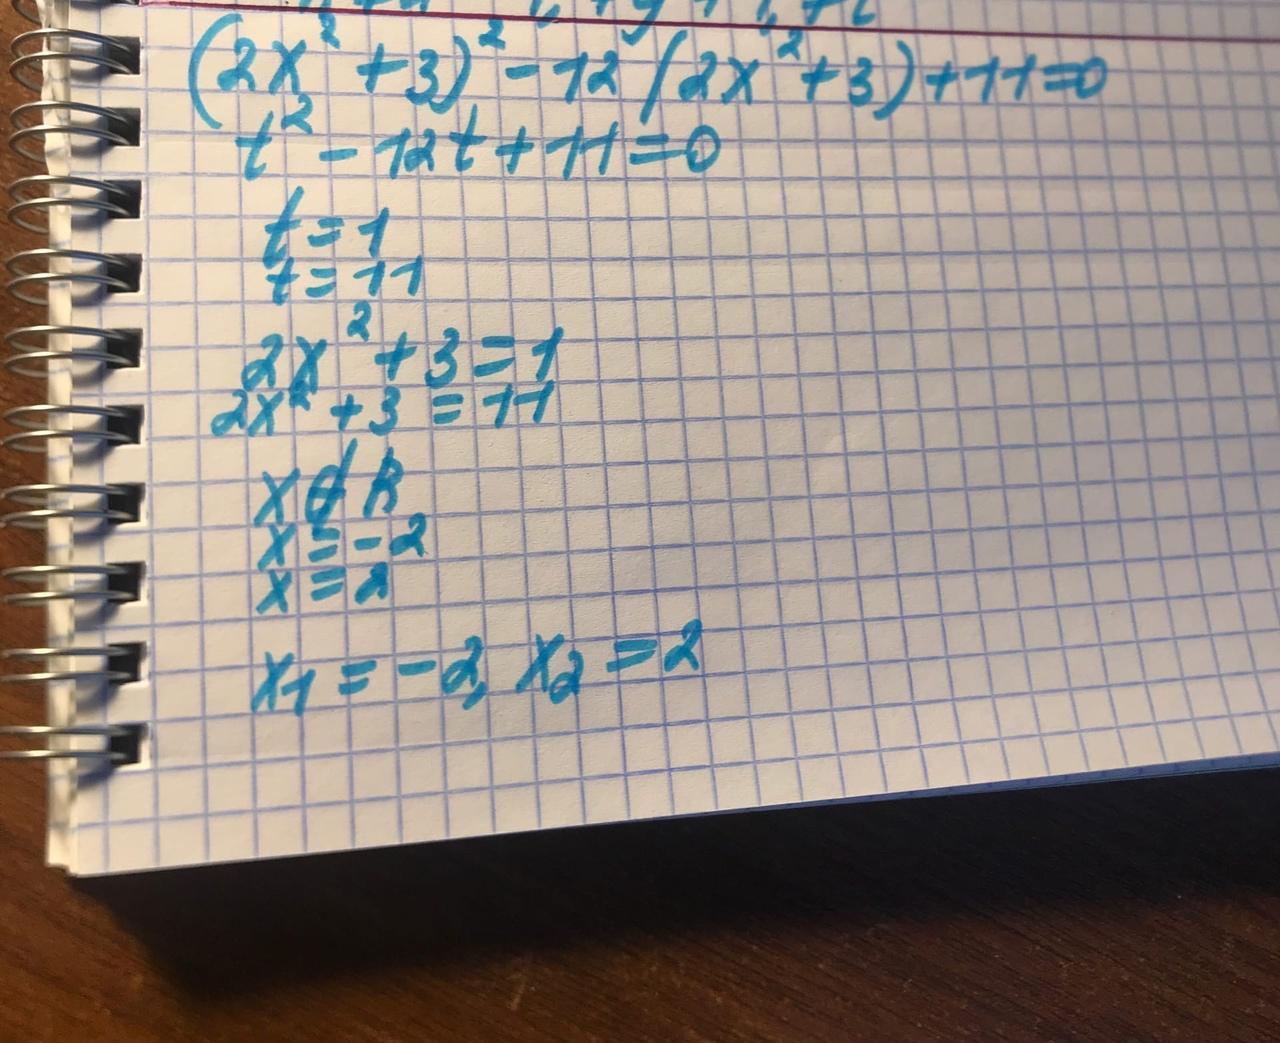 (2x² + 3)² - 12(2x² + 3) + 11 = 0
t² - 12t + 11 = 0
t = 1
t = 11
2x² + 3 = 1
2x² + 3 = 11
x ∉ R
x = -2
x = 2
x₁ = -2, x₂ = 2